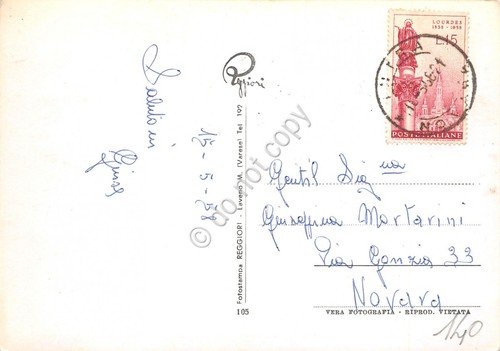 Salutoni
Giuse
15-5-58
Reggiori
Fotostampa REGGIORI - Laveno M. (Varese) Tel 192
do not copy
105
LOURDES
1858-1958
L.15
POSTE ITALIANE
Gentil Signa
Giuseppina Mortarini
Via Gorizia 33
Novara
VERA FOTOGRAFIA - RIPROD. VIETATA
140